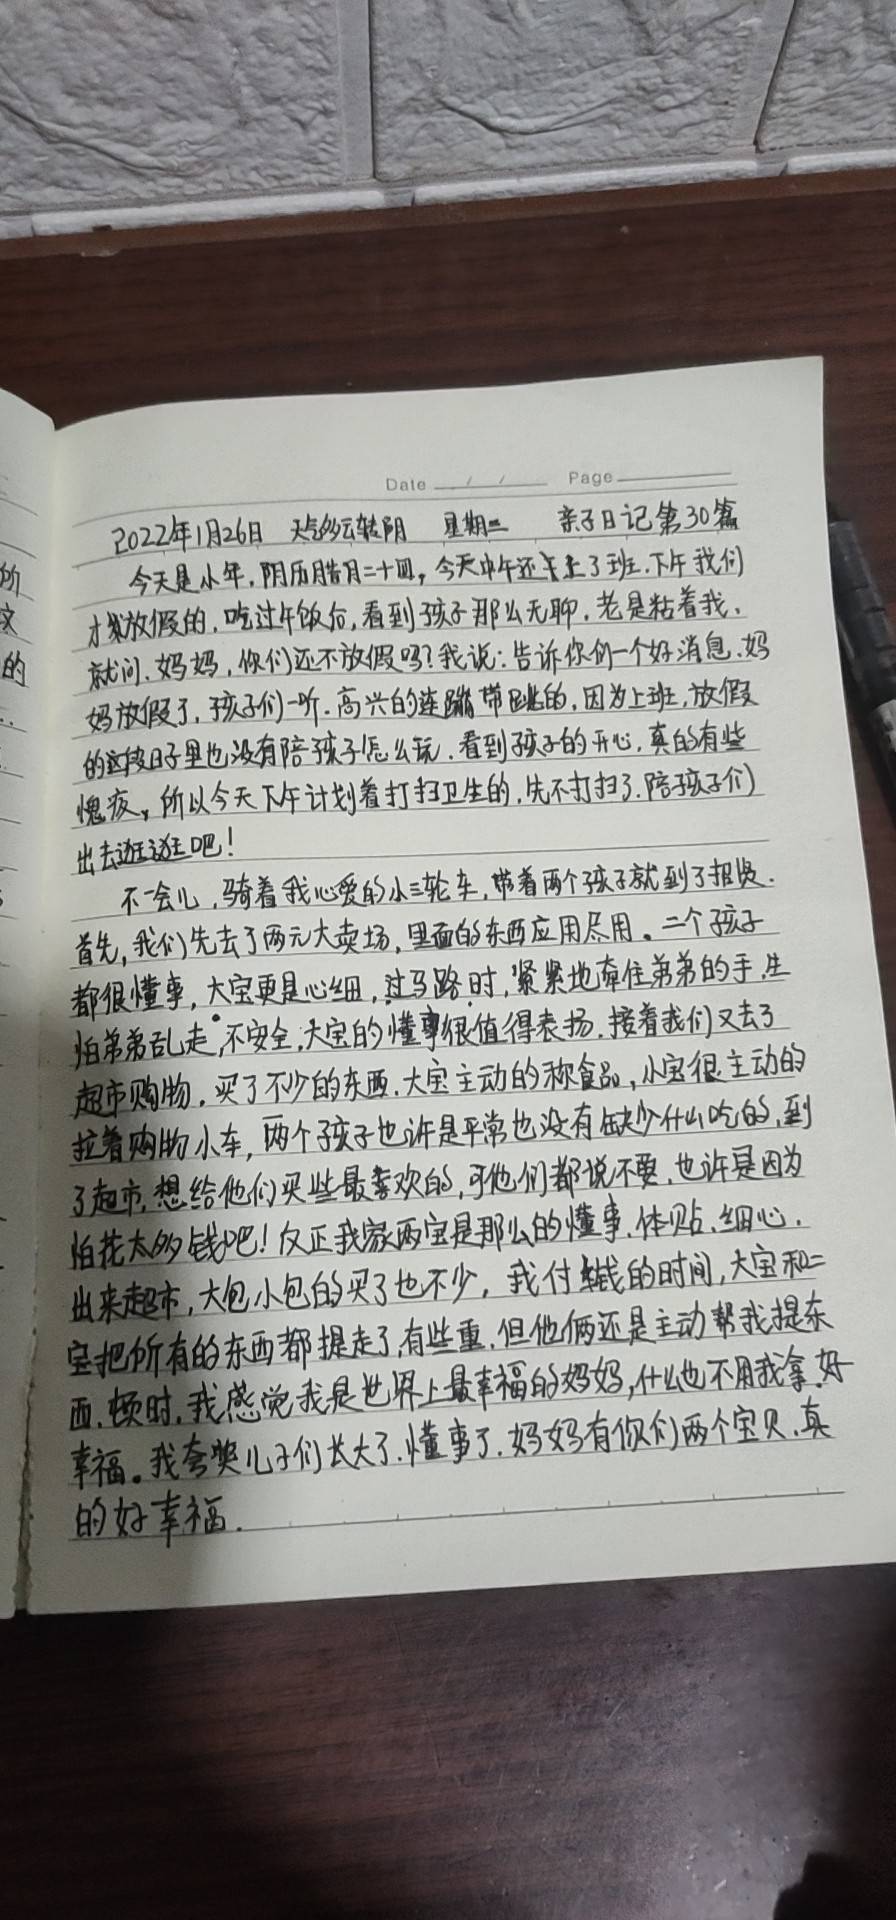 Date / / Page
2022年1月26日 天气多云转阴 星期三 亲子日记第30篇
今天是小年,阴历腊月二十四,今天中午还上了班.下午我们
才放假的,吃过午饭后,看到孩子那么无聊,老是粘着我,
就问.妈妈,你们还不放假吗?我说:告诉你们一个好消息.妈
妈放假了,孩子们一听.高兴的连蹦带跳的,因为上班,放假
的这段日子里也没有陪孩子怎么玩.看到孩子的开心,真的有些
愧疚,所以今天下午计划着打扫卫生的,先不打扫了.陪孩子们
出去逛逛吧!
不一会儿,骑着我心爱的小三轮车,带着两个孩子就到了报贤.
首先,我们先去了两元大卖场,里面的东西应用尽用。二个孩子
都很懂事,大宝更是心细,过马路时,紧紧地牵住弟弟的手,生
怕弟弟乱走,不安全,大宝的懂事很值得表扬.接着我们又去了
超市购物,买了不少的东西.大宝主动的称食品,小宝很主动的
拉着购物小车,两个孩子也许是平常也没有缺少什么吃的,到
了超市,想给他们买些最喜欢的,可他们都说不要.也许是因为
怕花太多钱吧!反正我家两宝是那么的懂事.体贴.细心.
出来超市,大包小包的买了也不少,我付钱的时间,大宝和二
宝把所有的东西都提走了,有些重,但他俩还是主动帮我提东
西.顿时,我感觉我是世界上最幸福的妈妈,什么也不用我拿,好
幸福。我夸奖儿子们长大了.懂事了.妈妈有你们两个宝贝.真
的好幸福.
所
的